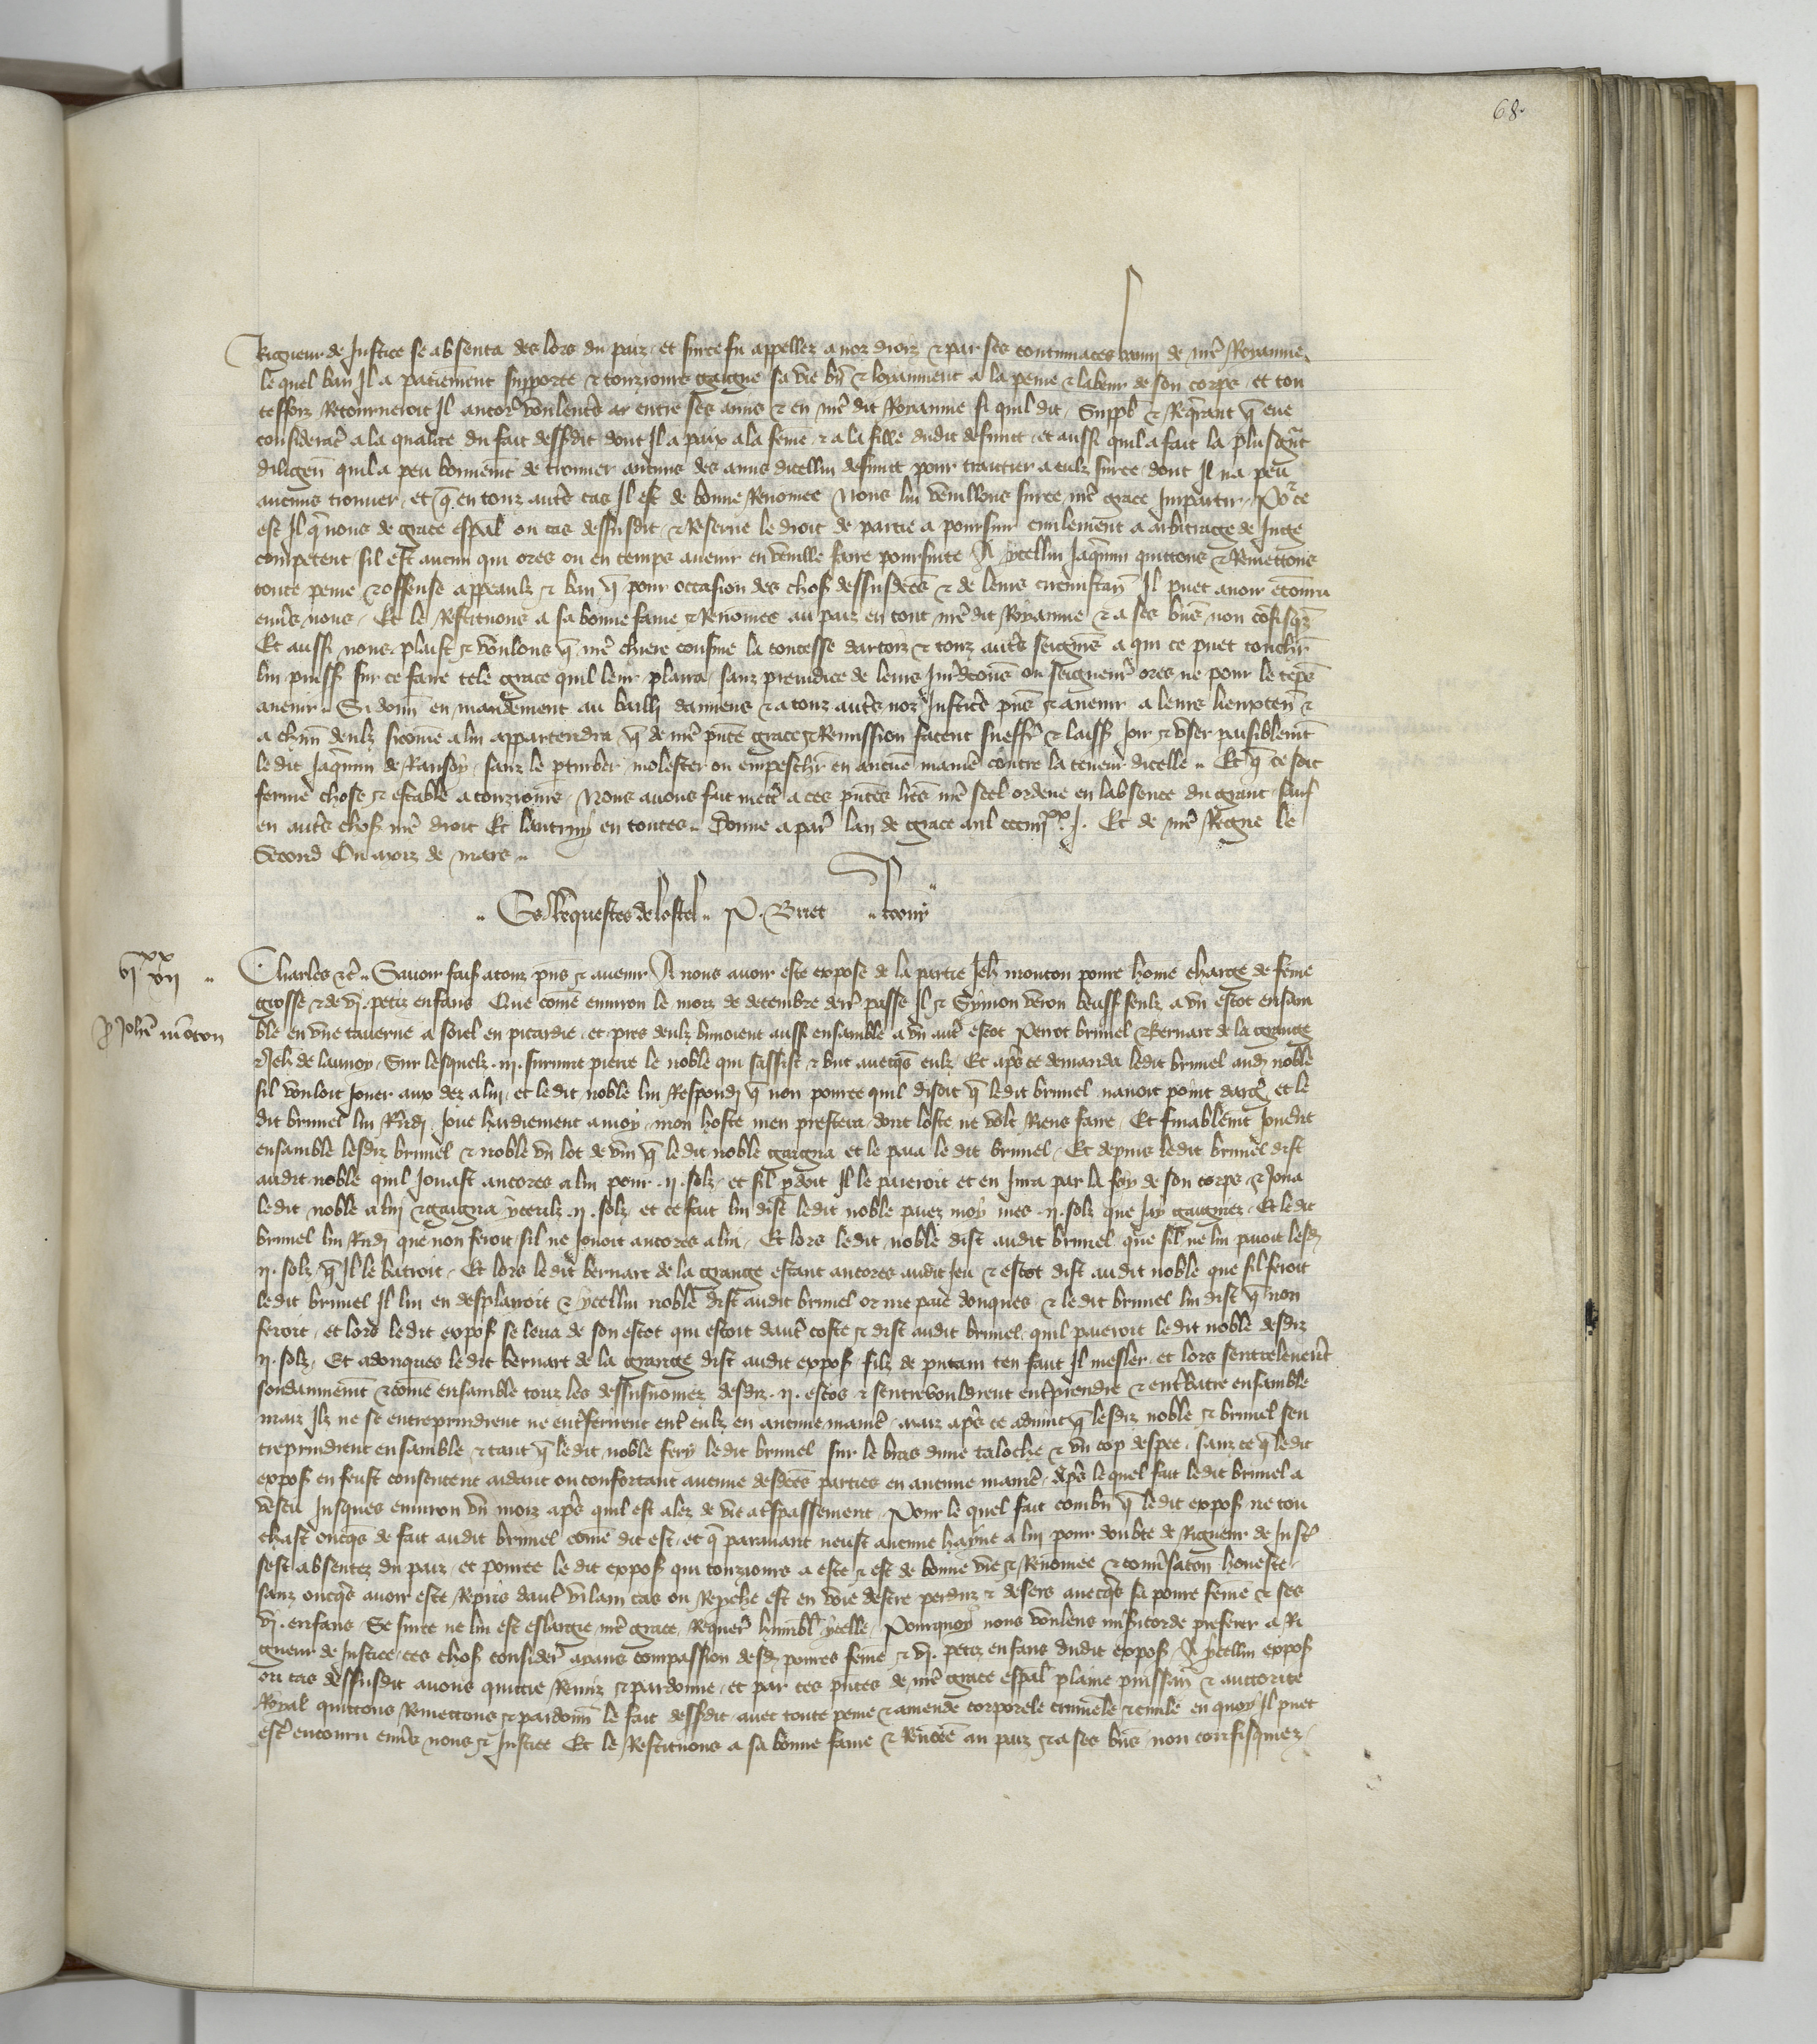 68.
Rigueur de Justice se absenta des lors du paiz et sur ce fu appellez a noz droiz & par ses contumaces banni de nre Royaume
le quel ban Il a paciemment supporte & touzjours gaigne sa vie bn & loyaument a la peine & labeur de son corps et
considerac a la qualite du fait dessusdit dont Il a paix a la feme & a la fille dudit defunct et aussi quil a fait la plus grant
diligen quil a peu bonnemt de trouver aucuns des amis dicellui defunct pour traictier a eulz sur ce dont Il na peu
aucuns trouver et q en touz autres cas Il est de bonne Renomee Nous lui vueillons sur ce nre grace Impartir Por ce
est Il q nous de grace espal ou cas dessusdit & Reserve le droit de partie a poursuir civilement a arbitrage de Juge
competent sil est aucun qui ores ou en temps avenir en vueille faire poursuite A ycellui Jaqmin quittons & Remettons
toute peine & offense appeaulz & ban q pour occasion des chos dessusdces & de leurs circunstan Il puet avoir encouru
envs nous Et le Restituons a sa bonne fame & Renomee au paiz en tout nre dit Royaume & a ses bns non cofisqz
Et aussi nous plaist & voulons q nre chiere cousine la contesse dartoiz & touz auts seigns a qui ce puet touchr
lui puiss sur ce faire tele grace quil leur plaira sanz prejudice de leurs Jurdcons ou seigneur ores ne pour le teps
avenir Si donn en mandement au bailli damiens & a touz auts noz Justics pns & avenir a leurs lieuxten &
a chun deulz sicome a lui appartendra q de nre pnte grace & Remission facent sueffr & laiss joir & user paisiblemt
le dit Jaqmin de Ransoy sanz le ptourber molester ou empeschr en aucue manie contre la teneur dicelle Et q ce soit
ferme chose & estable a touzjours Nous avons fait mett a ces pntes lres nre seel ordene en labsence du grant sauf
en auts chos nre droit Et lautruy en toutes Donne a par lan de grace mil ccc iiiixx j Et de nre Regne le
Second Ou moiz de mars
Es Requestes de lostel P. Briet
vi xx vii
Charles &c Savoir fais a touz pns & avenir A nous avoir este expose de la partie Jeh mouton povre home charge de feme
p Johe mouton
grosse & de vj petiz enfans Que come environ le mois de decembre derr passe Il & Symon veron beuss seulz a un escot ensam
ble en une taverne a sorel en picardie et pres deulz buvoient aussi ensamble a un aut escot Perrot brunel & Bernart de la grange
& Jeh de launoy Sur lesquelz iij survint pierre le noble qui sassist & but avecqs eulz Et aps ce demanda ledit brunel aud noble
sil vouloit jouer aux dez a lui et le dit noble lui Respondi q non pource quil disoit q ledit brunel navoit point dargt et le
dit brunel lui Rndi joue hardiement a moy mon hoste men prestera dont loste ne volt Riens faire Et finablemt jouent
ensamble lesdiz brunel & noble un lot de vin q le dit noble gaigna et le paia le dit brunel Et depuis ledit brunel dist
audit noble quil Jouast ancores a lui pour ij solz et sil pdoit Il le paieroit et en Jura par la foy de son corps & Joua
ledit noble a lui & gaigna yceulz ij solz et ce fait lui dist ledit noble paiez moy mes ij solz que jay gaignez Et ledit
brunel lui Rndi que non feroit sil ne Jouoit ancores a lui Et lors ledit noble dist audit brunel que sil ne lui paioit lesd
ij solz q Il le batroit Et lors le dit bernart de la grange estant ancores audit jeu & escot dist audit noble que sil feroit
ledit brunel Il lui en desplairoit & ycellui noble dist audit brunel or me paie donques & le dit brunel lui dist q non
feroit et lors le dit expos se leva de son escot qui estoit daut coste & dist audit brunel quil paieroit le dit noble desdiz
ij solz Et adonques le dit bernart de la grange dist audit expos filz de putain ten faut Il mesler et lors sentrelevert
soudainemt & come ensamble touz les dessusnomez desdiz ij escos & sentrevouldrent entprendre & entbatre ensamble
maiz Ilz ne se entreprindrent ne entferirent ent eulz en aucune manie maiz aps ce advint q lesdiz noble & brunel sen
treprindrent ensamble & tant q ledit noble fery ledit brunel sur le bras dune taloche & un cop despee sanz ce q ledit
expos en feust consentent aidant ou confortant aucune desdces parties en aucune manie Aps le quel fait ledit brunel a
vescu Jusques environ un moiz aps quil est alez de vie a tspassement Pour le quel fait combn q ledit expos ne tou
chast oncqs de fait audit brunel come dit est et q paravant neust aucune hayne a lui pour doubte de Rigueur de Just
sest absentez du paiz et pource le dit expos qui touzjours a este & est de bonne vie & Renomee & convsacon honeste
sanz oncqs avoir este Repris daut vilain cas ou Repche est en voie destre perduz & desers avecqs sa povre feme & ses
vj enfans Se sur ce ne lui est eslargie nre grace Requer humbl ycelle Pourquoy nous voulens misicorde preferer a Ri
gueur de Justice ces chos consider ayans compassion desd povres feme & vj petiz enfans dudit expos A ycellui expos
ou cas dessusdit avons quictie Remiz & pardonne et par ces pntes de nre grace espal plaine puissan & auctorite
Royal quittons Remettons & pardonn le fait dessdit avec toute peine & amende corporele crimele & civile en quoy Il puet
est encouru envs nous & Justice Et le Restituons a sa bonne fame & Renomee au paiz & a ses bns non confisquiez